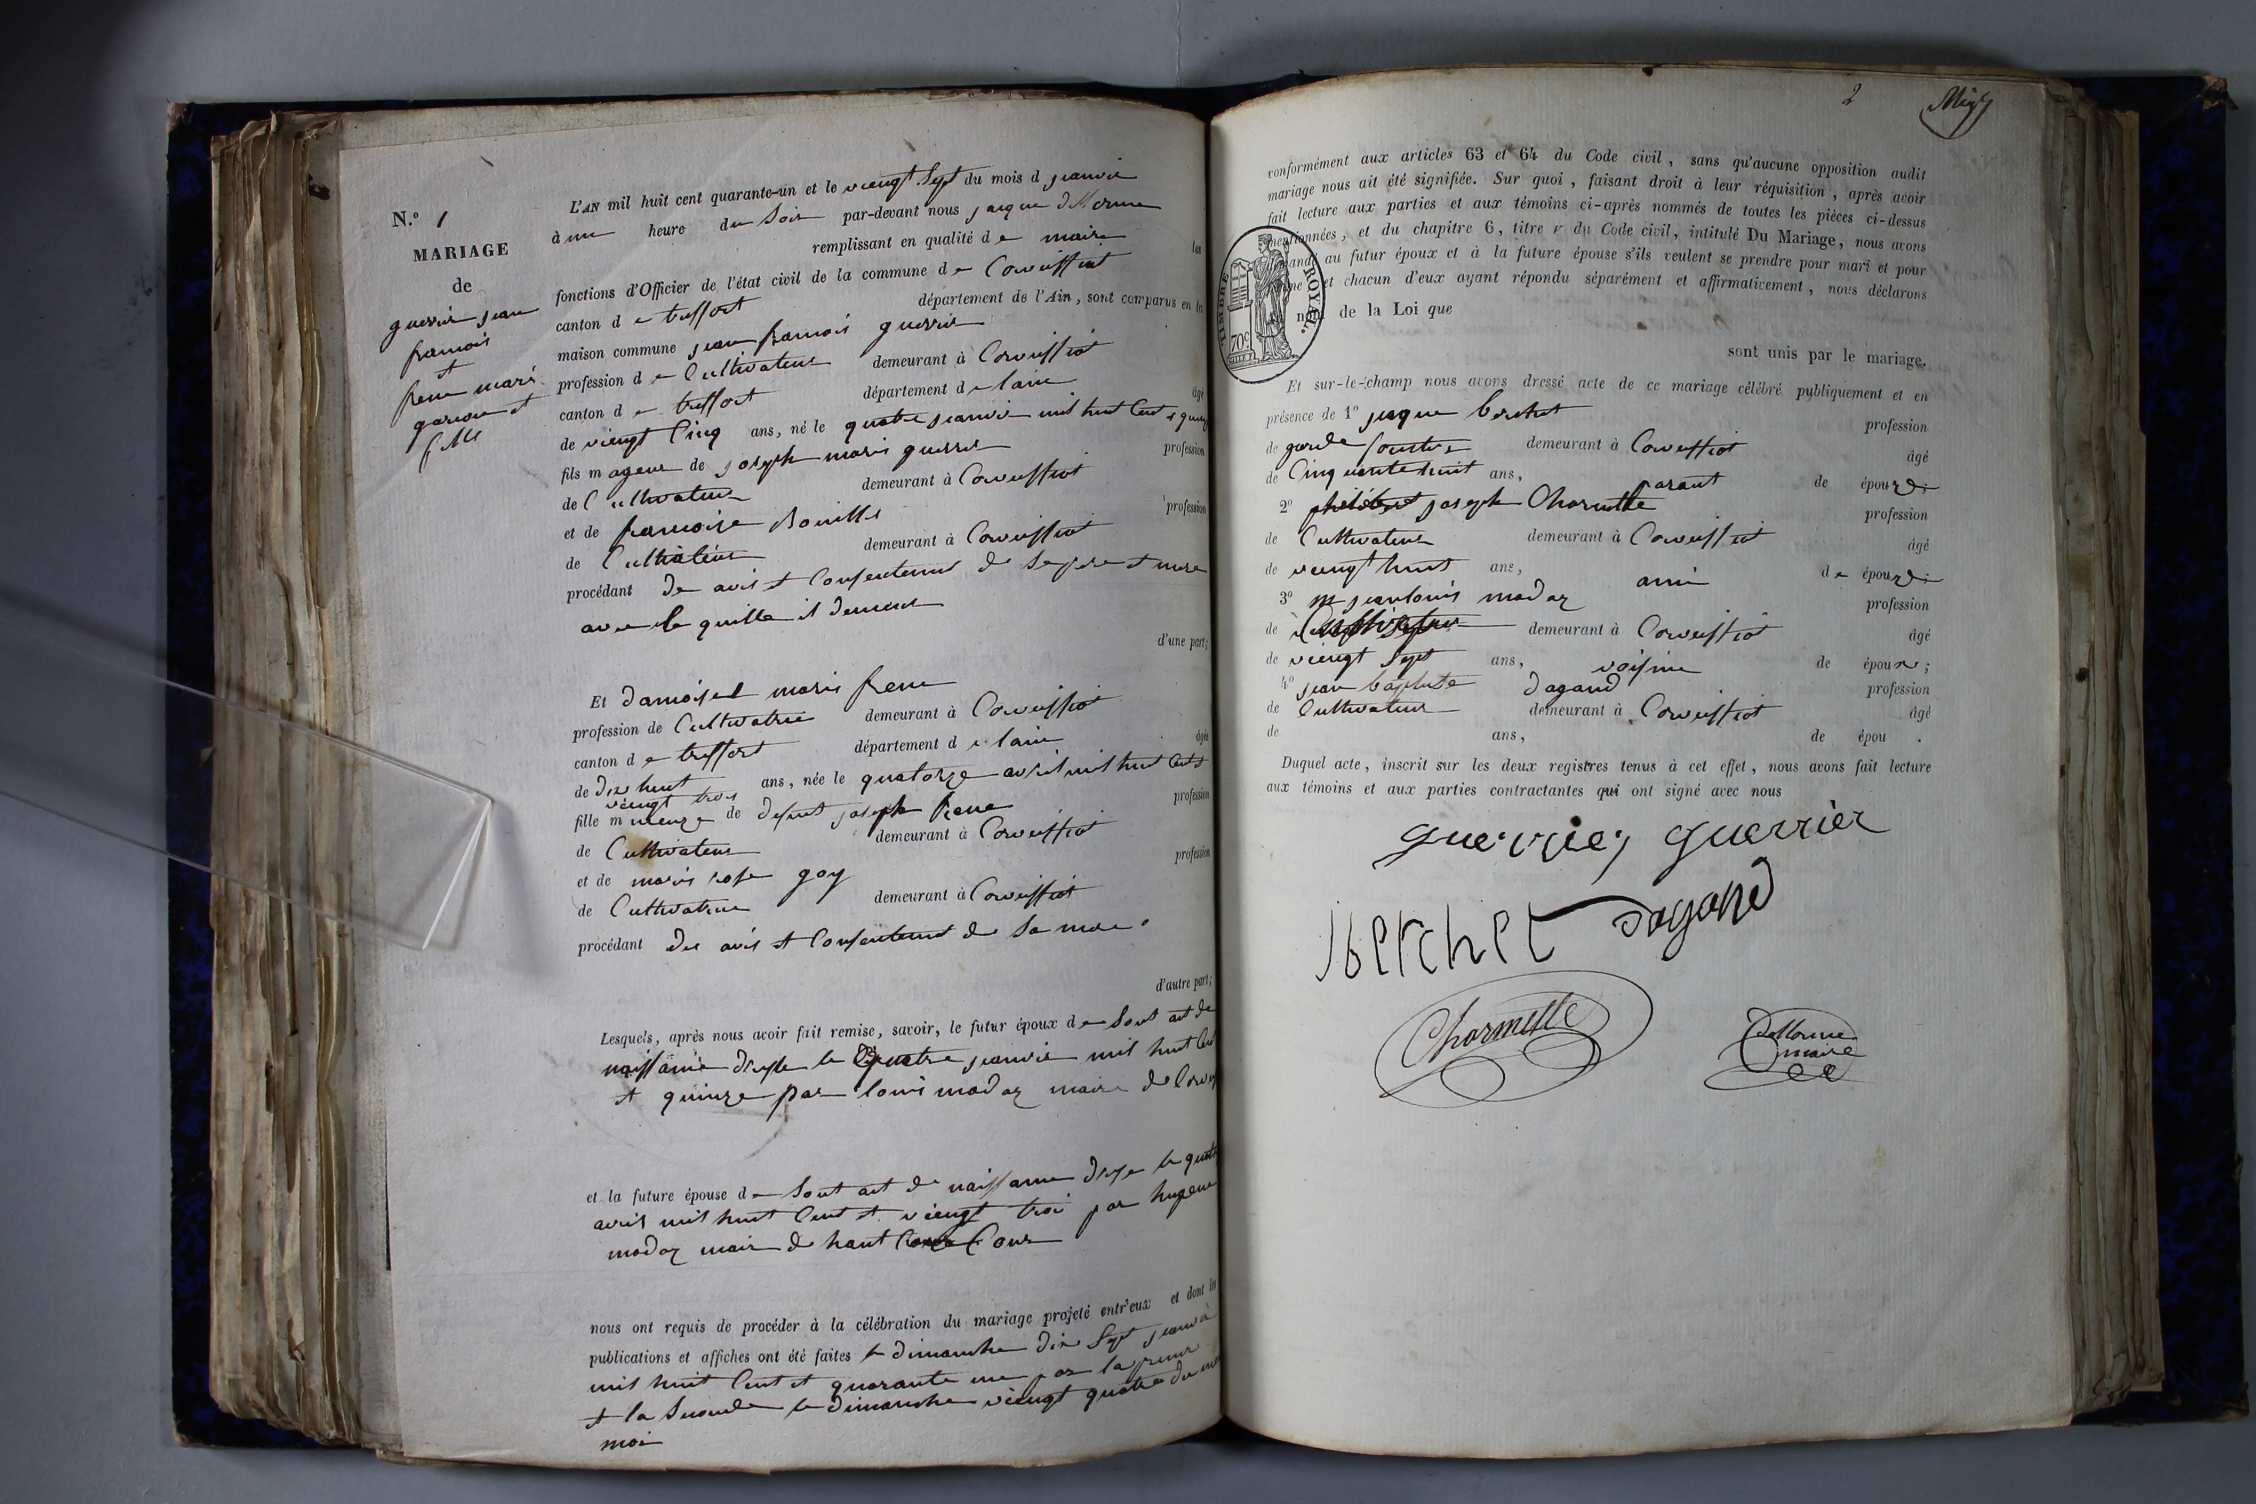 N.o 1
MARIAGE
de
guerrier jean
francois
et
frene marie
garcon et
fille
L'AN mil huit cent quarante-un et le viengt sept du mois d janvie
à une heure du soir par-devant nous jacque
remplissant en qualité de maire les
fonctions d'Officier de l'état civil de la commune de Corveissiat
canton de treffort département de l'Ain, sont comparus en la
maison commune jean francois guerrier
profession de Cultivateur demeurant à Corveissiat
canton de treffort département de lain âgé
de viengt Cinq ans, né le quatre janvie mil huit Cent quinz
fils mageur de joseph marie guerrier profession
de Cultivateur demeurant à Corveissiat
et de francoise profession
de Cultivateur demeurant à Corveissiat
procédant de avis et Consentement de se pere et mere
avec le quille il demeure
d'une part;
Et damoisel marie frene
profession de Cultivatrice demeurant à Corveissiat
canton de treffort département de lain âgée
de dix huit ans, née le quatorze avril mil huit Cent
viengt trois
fille mineuze de defunt joseph frene profession
de Cultivateur demeurant à Corveissiat
et de marie rose goy profession
de Cultivatrice demeurant à Corveissiat
procédant de avis et Consentement de sa mere
d'autre part;
Lesquels, après nous avoir fait remise, savoir, le futur époux de Sont act de
naissance le quatre janvie mil huit Cent
et quinze par louis madaz maire de
et la future épouse de Sont act de naissance
avril mil huit Cent et viengt troi par hugene
madaz maire de haut Cour
nous ont requis de procéder à la célébration du mariage projeté entr'eux et dont les
publications et affiches ont été faites le dimanche dix Sept janvie
mil huit Cent et quarante une par la
et la Seconde le dimanche viengt quatre du
moi
2
conformément aux articles 63 et 64 du Code civil, sans qu'aucune opposition audit
mariage nous ait été signifiée. Sur quoi, faisant droit à leur réquisition, après avoir
fait lecture aux parties et aux témoins ci-après nommés de toutes les pièces ci-dessus
mentionnées, et du chapitre 6, titre v du Code civil, intitulé Du Mariage, nous avons
au futur époux et à la future épouse s'ils veulent se prendre pour mari et pour
et chacun d'eux ayant répondu séparément et affirmativement, nous déclarons
de la Loi que
TIMBRE ROYAL.
70c
sont unis par le mariage.
Et sur-le-champ nous avons dressé acte de ce mariage célébré publiquement et en
présence de 1o jacque berchet profession
de garde demeurant à Corveissiat âgé
de Cinquante huit ans, parant de épou
2o joseph Charnette profession
de Cultivateur demeurant à Corveissiat âgé
de viengt huit ans, ami de épou
3o jean louis madaz profession
de Cultivateur demeurant à Corveissiat âgé
de viengt Sept ans, voisine de époux;
4o jean baptiste dagand profession
de Cultivateur demeurant à Corveissiat âgé
de ans, de épou .
Duquel acte, inscrit sur les deux registres tenus à cet effet, nous avons fait lecture
aux témoins et aux parties contractantes qui ont signé avec nous
guerrier guerrier
jberchet dagand
Charmette
maire